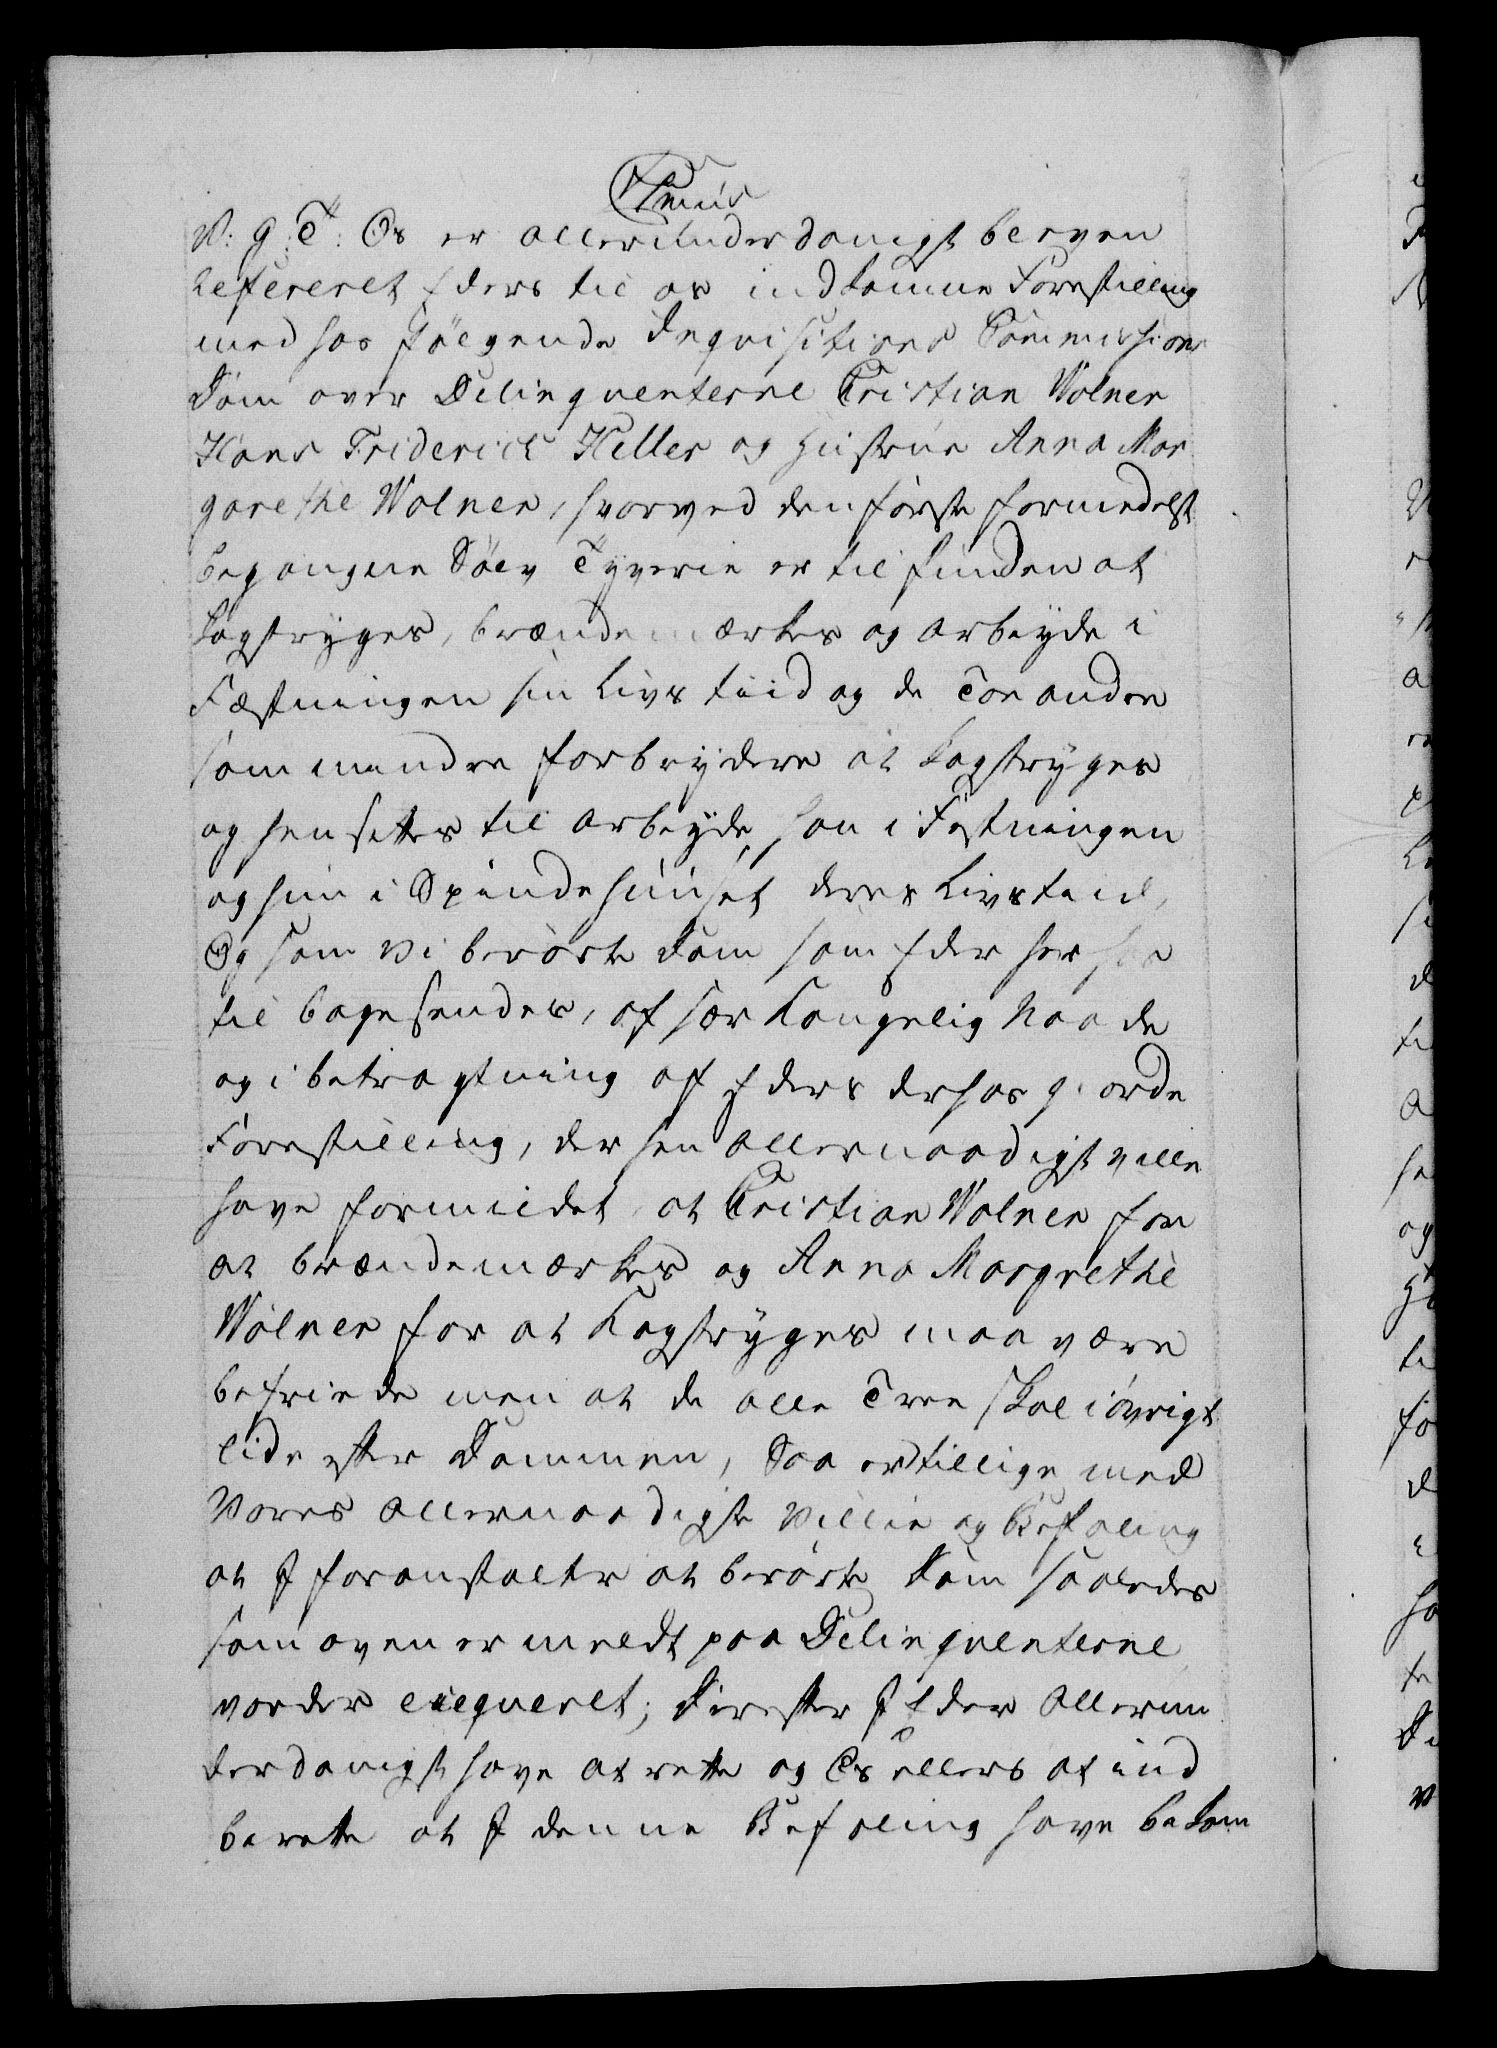 V: G: T: Os er allerunderdanigst bleven
refereret Eders til os indkomne Forestilling
med hos følgende Inqvisitions Commissions
Dom over Delinqventerne Cristian Wolner
Hans Friderich Heller og Hustrue Anna Mar
garethe Wolner, hvorved den første formedelst
begangne Sølv Tyverie er til funden at
Kagstryges, brændemærkes og arbeyde i
Fæstningen sin Livs tiid og de Toe andre
som mindre forbrydere at Kagstryges
og hensettes til Arbeyde, han i Festningen
og hun i Spindehuuset deres Livs tiid,
Og som vi berørte Dom som Eder her hos
til bagesendes, af sær Kongelig Naade
og i betragtning af Eders derhos giorde
Forestilling, derhen allernaadigst ville
have formildet at Cristian Wolner for
at brændemærkes og Anna Margrethe
Wolner for at Kagstryges maa være
befriede men at de alle Tree skal i øvrigt
lide efter Dommen, Saa er tillige med
Vores allernaadigste Villie og Befaling
at I foranstalter at berørte Dom saaledes
som oven er meldt paa Delinqventerne
vorder exeqveret; Derefter I Eder allerun
derdanigst have at rette og Os ellers at ind
berette at I denne Befaling have bekom